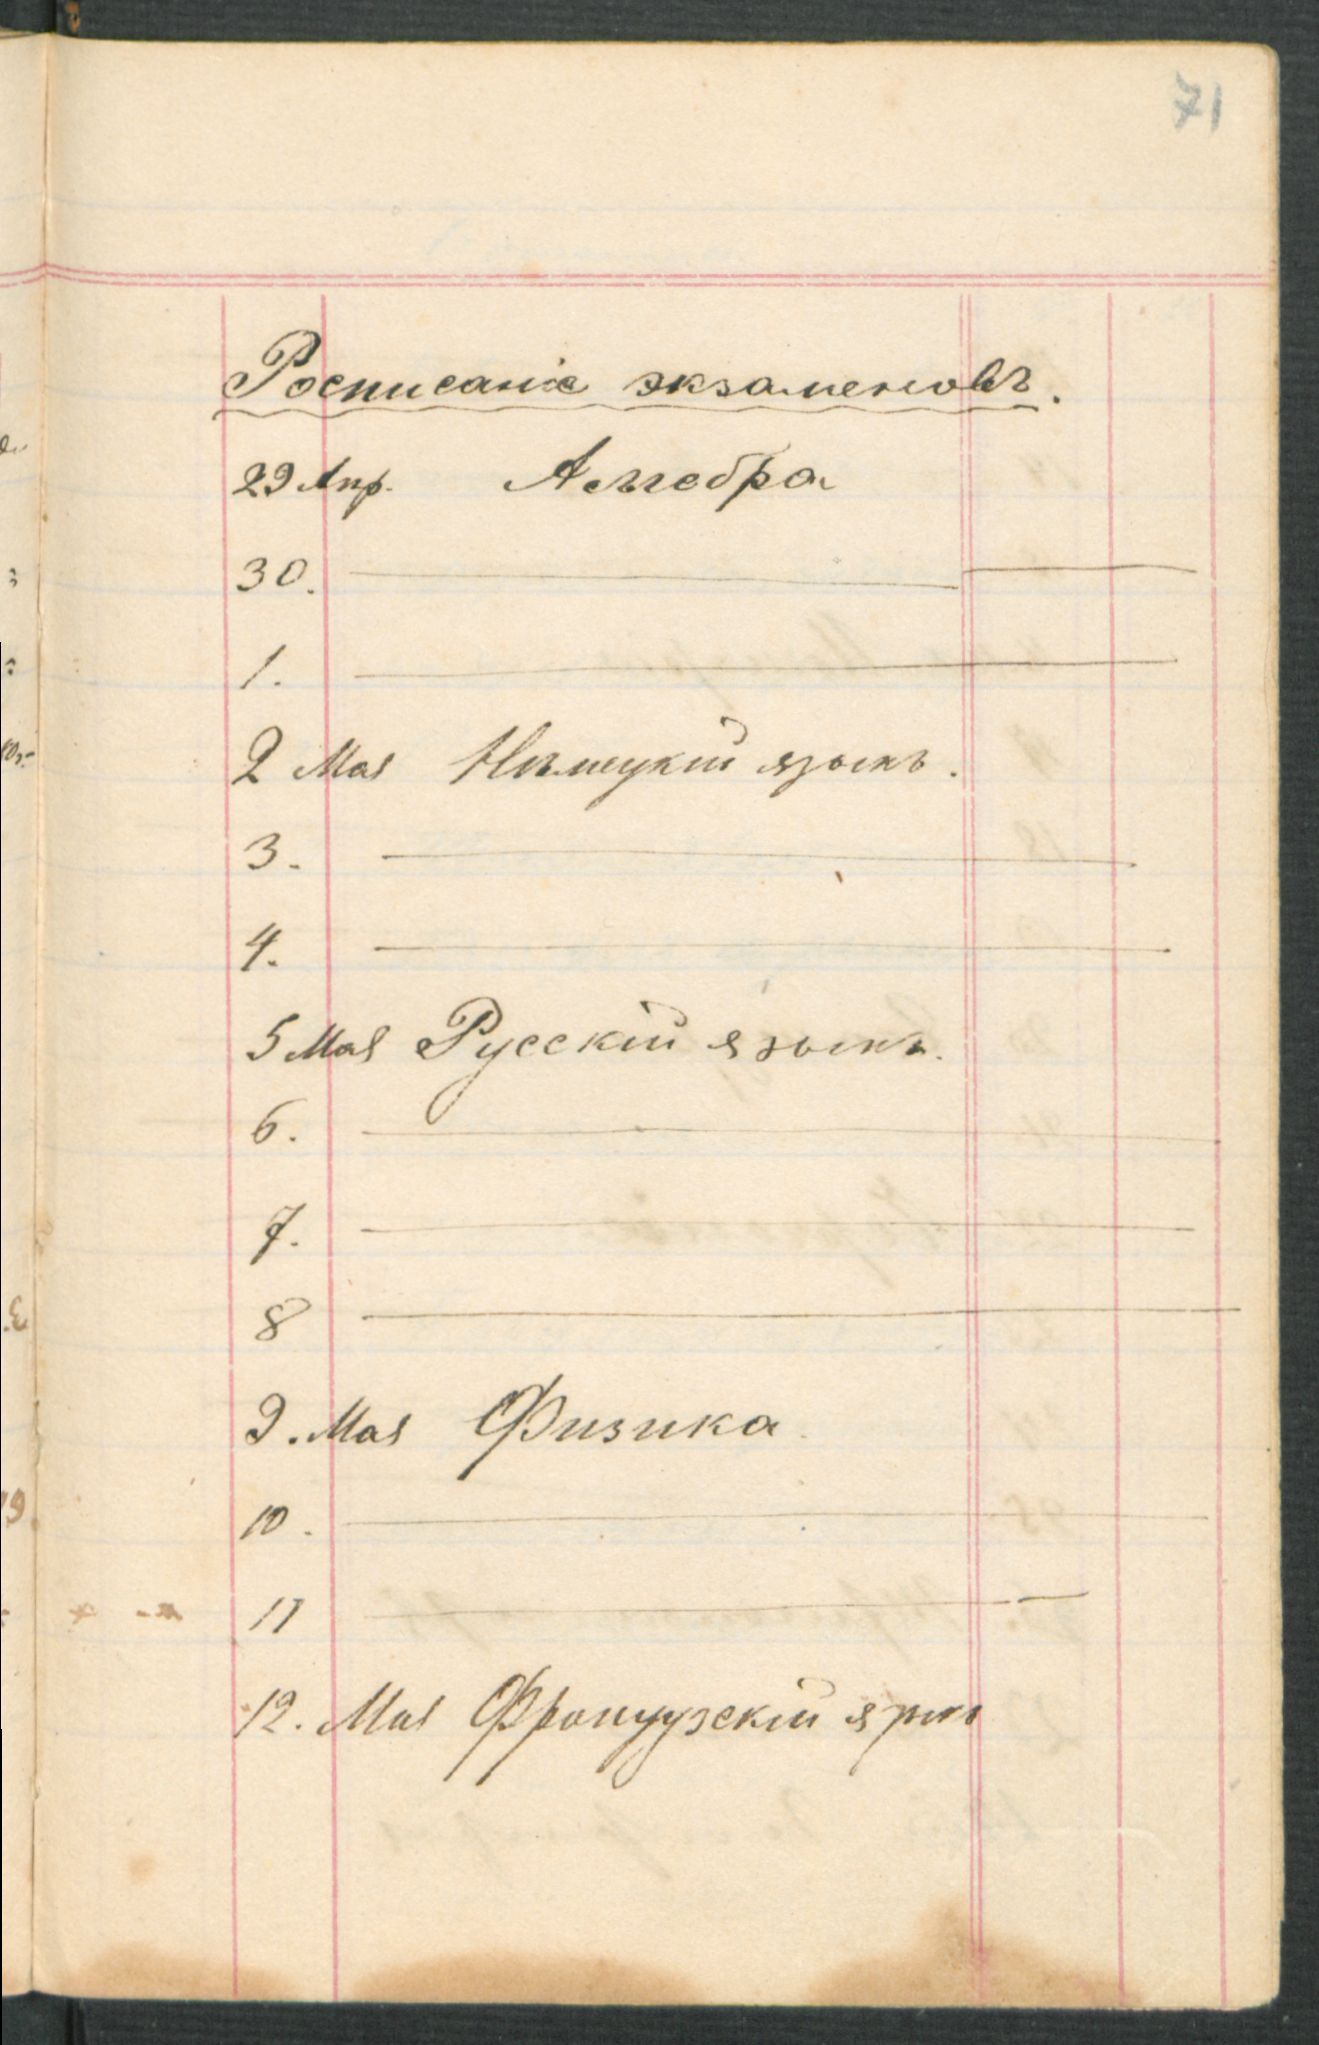 71
Росписаніе экзаменовъ.
29 Апр. Алгебра
30.
1.
2 Мая Нѣмецкій языкъ.
3.
4.
5 Мая Русскій языкъ.
6.
7.
8
9. Мая Физика.
10.
11
12. Мая Французскій языкъ